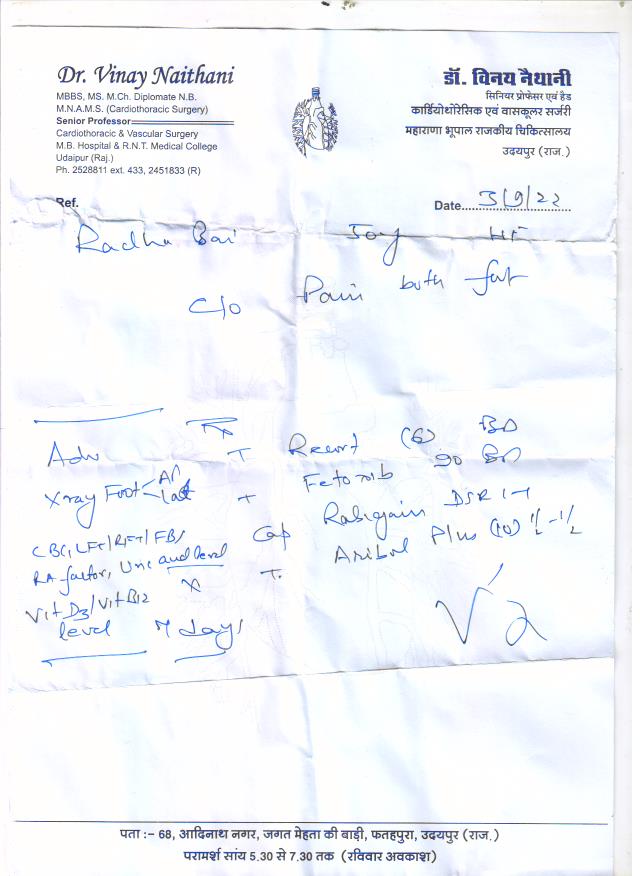 Dr. Vinay Naithani
MBBS, MS. M.Ch. Diplomate N.B.
M.N.A.M.S. (Cardiothoracic Surgery)
Senior Professor
Cardiothoracic & Vascular Surgery
M.B. Hospital & R.N.T. Medical College
Udaipur (Raj.)
Ph. 2528811 ext. 433, 2451833 (R)
डॉ. विनय नैथानी
सिनियर प्रोफेसर एवं हैड
कार्डियोथोरेसिक एवं वासकूलर सर्जरी
महाराणा भूपाल राजकीय चिकित्सालय
उदयपुर (राज.)
Ref.
Date 3/9/22
Radha Bai
C/o Pain both
Adv
Xray Foot
CBC, LFT/RFT/FBS
RA factor, Uric acid level
Vit D3/Vit B12
level
T (6) BD
T 90 BD
Cap DSR 1-1
T. Plus (10) ½-½
x
7 days
पता :– 68, आदिनाथ नगर, जगत मेहता की बाड़ी, फतहपुरा, उदयपुर (राज.)
परामर्श सांय 5.30 से 7.30 तक (रविवार अवकाश)